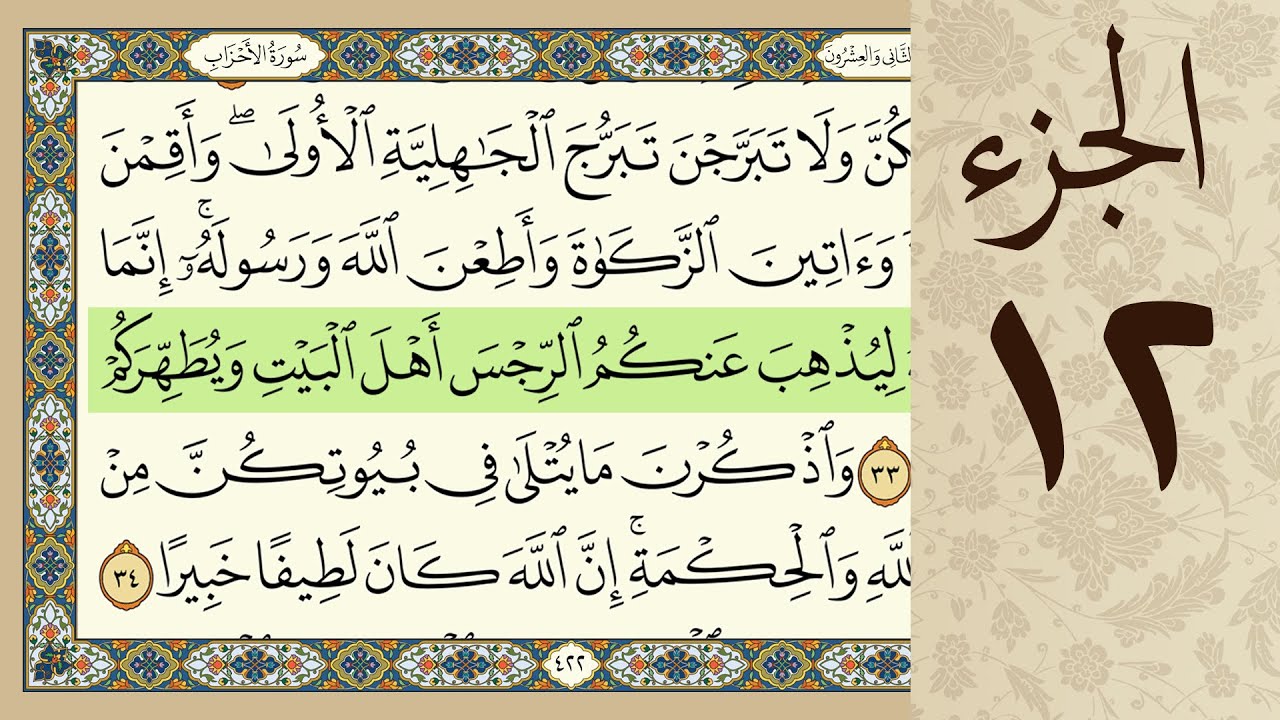 سُورَةُ الأَحْزَابِ
الثَّانِي وَالعِشْرُونَ
كُنَّ وَلَا تَبَرَّجْنَ تَبَرُّجَ ٱلْجَـٰهِلِيَّةِ ٱلْأُولَىٰ ۖ وَأَقِمْنَ
وَءَاتِينَ ٱلزَّكَوٰةَ وَأَطِعْنَ ٱللَّهَ وَرَسُولَهُۥٓ ۚ إِنَّمَا
لِيُذْهِبَ عَنكُمُ ٱلرِّجْسَ أَهْلَ ٱلْبَيْتِ وَيُطَهِّرَكُمْ
٣٣ وَٱذْكُرْنَ مَا يُتْلَىٰ فِى بُيُوتِكُنَّ مِنْ
ٱللَّهِ وَٱلْحِكْمَةِ ۚ إِنَّ ٱللَّهَ كَانَ لَطِيفًا خَبِيرًا ٣٤
٤٢٢
الجزء
١٢